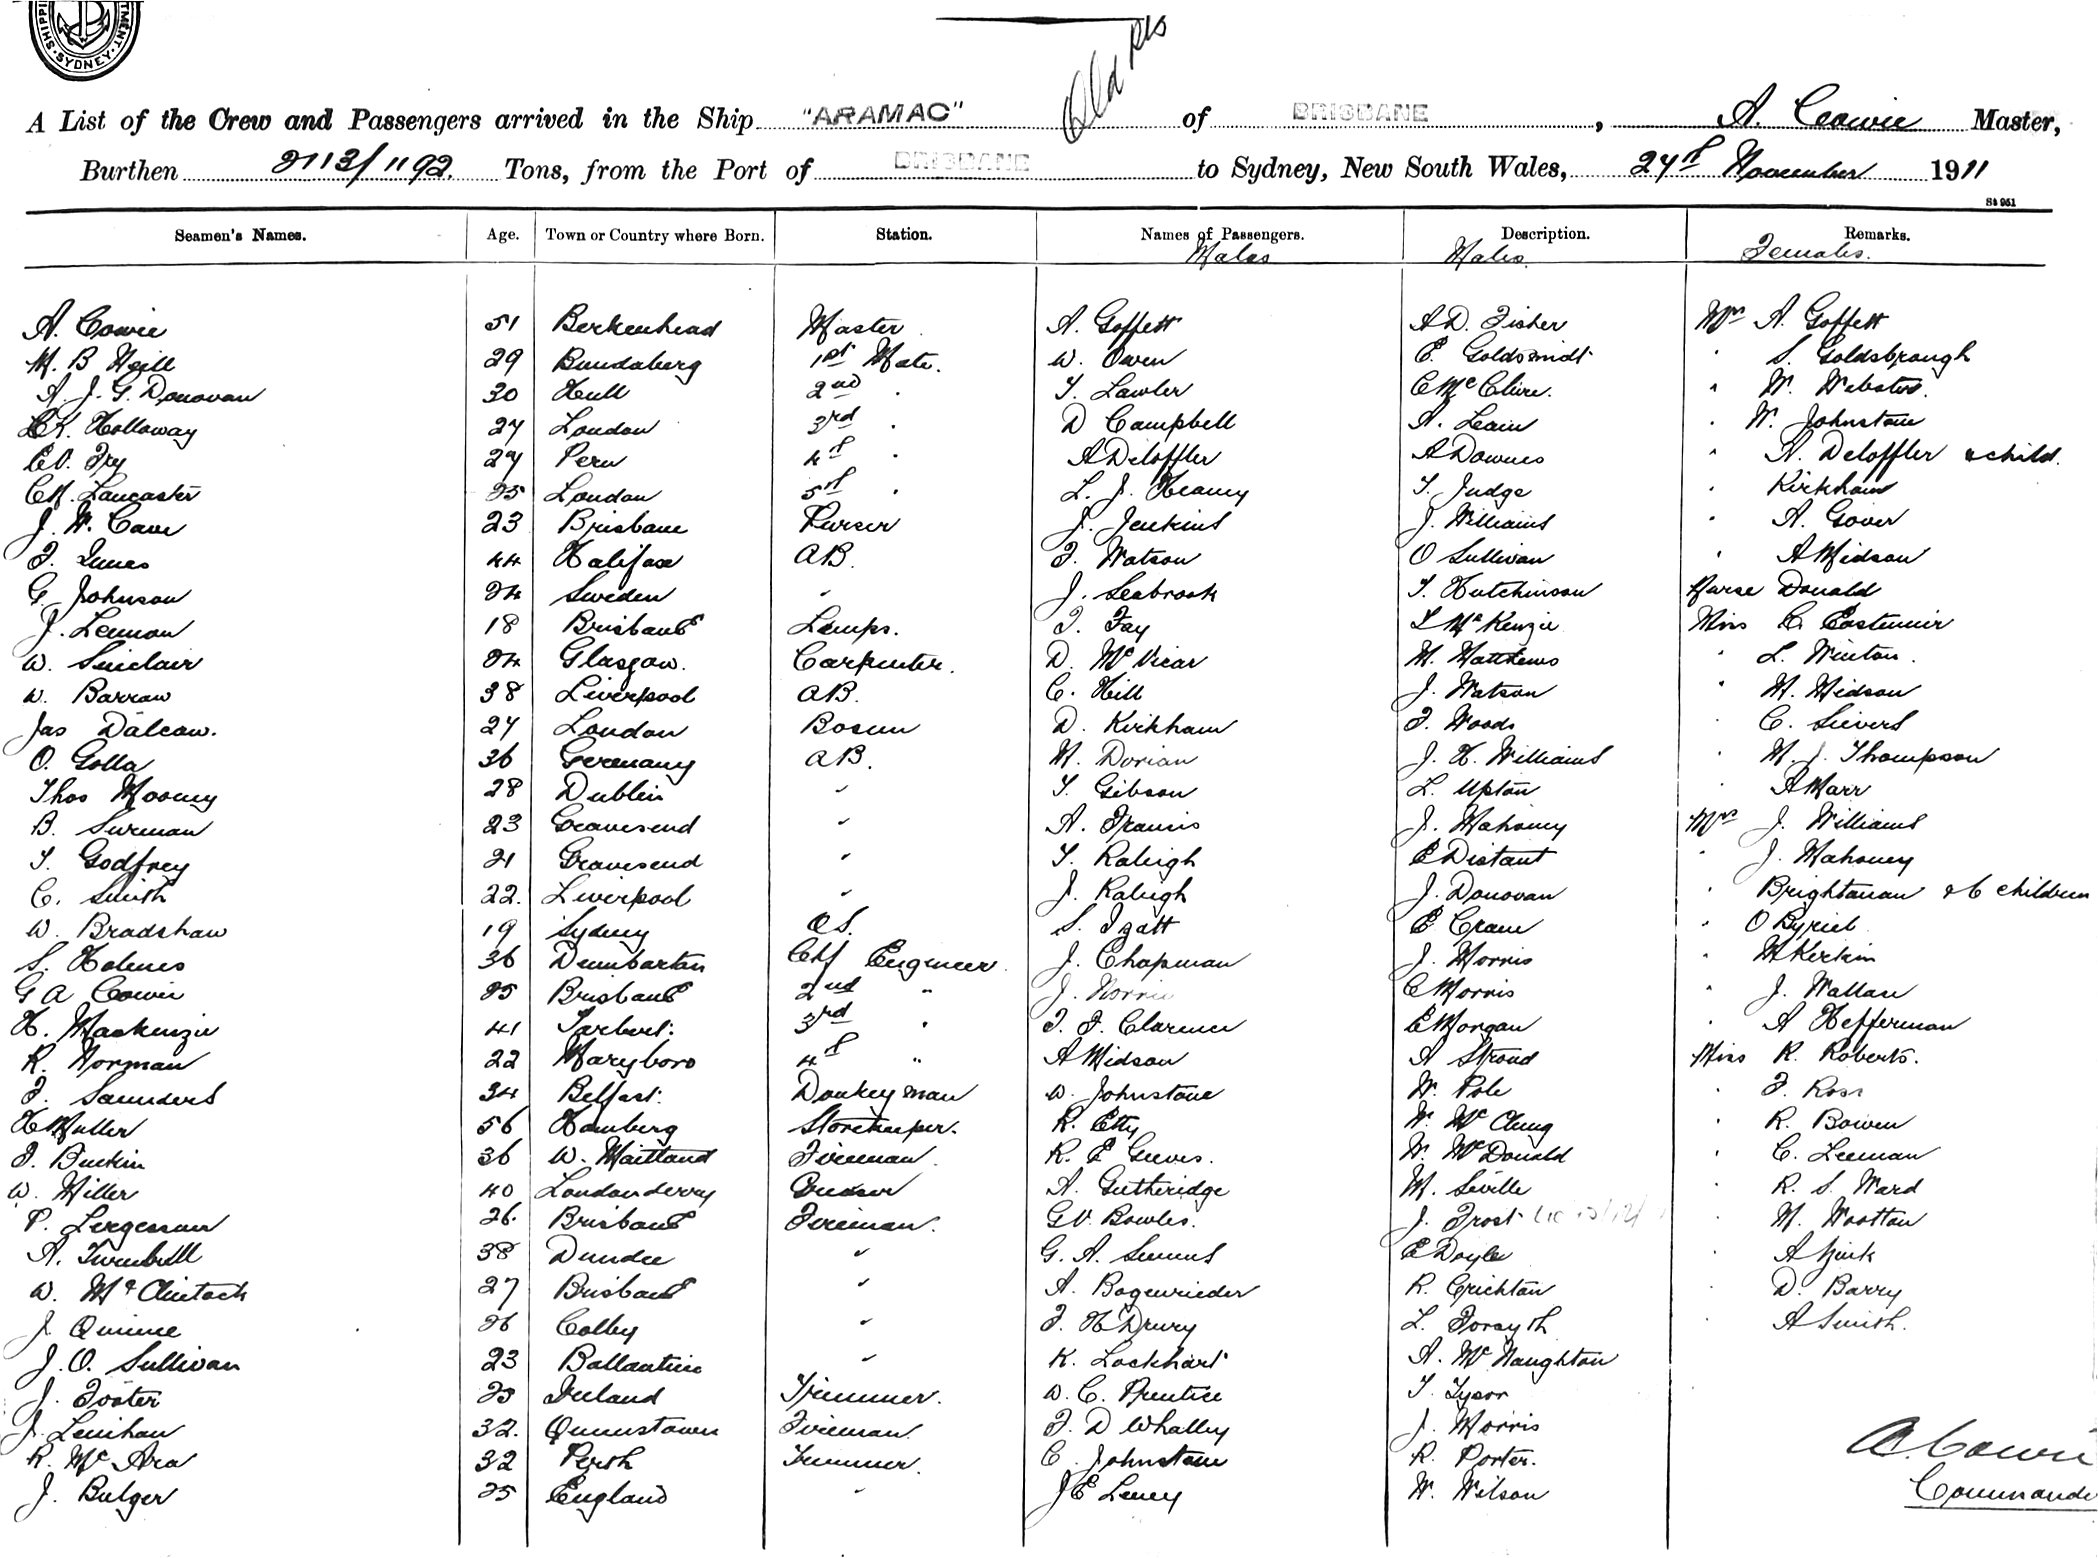 SHIPPING DEPARTMENT. SYDNEY.
Old
A List of the Crew and Passengers arrived in the Ship "ARAMAC" of BRISBANE, A. Cowie Master,
Burthen 2113/1192. Tons, from the Port of BRISBANE to Sydney, New South Wales, 24th November 1911
St 951
Seamen's Names. Age. Town or Country where Born. Station. Names of Passengers. Description. Remarks.
Males Males. Females.
A. Cowie 51 Berkenhead Master A. Goffett A D. Fisher Mrs A. Goffett
M. B Neill 29 Bundaberg 1st Mate. W. Owen E. Goldsmidt " S. Goldsbrough
A. J. G. Donovan 30 Hull 2nd " T. Lawler C McClure. " W. Webster.
K. Holloway 27 London 3rd " D Campbell A. Leain " W. Johnstone
Fry 27 Peru 4th " A Deloffler A Downes " A. Deloffler & child.
C H. Lancaster 25 London 5th " L. J. Heaney T. Judge " Kirkham
J. W. Cave 23 Brisbane Purser J. Jenkins J. Williams " A. Gover
F. Innes 44 Halifax A B. F. Watson O Sullivan " A Midson
G. Johnson 24 Sweden " J. Seabrook T. Hutchinson Nurse Donald
J. Lennon 18 Brisbane Lamps. F. Fay L McKenzie Miss C.
W. Sinclair 24 Glasgow. Carpenter. D. McVicar M. Matthews " L. Winton.
W. Barrow 38 Liverpool A B. C. Hill J. Watson " M. Midson
Jas Dalcaw. 27 London Bosun D. Kirkham F. Woods " C. Sievers
O. Golla 36 Germany A B. M. Dorian J. H. Williams " M. J. Thompson
Thos Mooney 28 Dublin " T. Gibson L. Upton " A Marr
B. Surman 23 Gravesend " A. Francis J. Mahoney Mrs J. Williams
T. Godfrey 21 Gravesend " T. Raleigh E Distant " J. Mahoney
C. Smith 22. Liverpool " J. Raleigh J. Donovan " Brightanan & 6 children
W. Bradshaw 19 Sydney O S. S. Izatt E Crane "
S. Holmes 36 Dumbarton Chf Engineer. J. Chapman J. Morris " M Kerkin
G A Cowie 25 Brisbane 2nd " J. Norris C Morris " J. Wallace
H. Mackenzie 41 Tarbert. 3rd " F. F. Clarence E Morgan " A Hefferman
R. Norman 22 Maryboro 4th " A Midson A Stroud Miss R. Roberts.
F. Saunders 34 Belfast. Donkeyman W. Johnstone W. Pole " F. Ross
H Muller 56 Hamberg Storekeeper. R. Etty W. McClung " R. Bowen
F. Buckin 36 W. Maitland Fireman. R. E Greves. W. McDonald " C. Leeman
W. Miller 40 Londonderry Greaser A. Gutheridge M. Seville " R. S. Ward
P. Jurgesson 26. Brisbane Fireman. G V. Bowles. J. Frost " M. Wootton
A. Turnbull 38 Dundee " G. A. Simms E Doyle " A
W. McClintock 27 Brisbane " A. Bogenrieder R. Crichton " D. Barry
J. Quinne 26 Colby " F. H Drury L. Forsyth " A Smith.
J. O. Sullivan 23 Ballantine " K. Lockhart A. McNaughton
J. Foster 25 Ireland Trimmer. W. C. Prentice T. Tyson
J. Lenihan 32. Queenstown Fireman. F. D Whalley J. Morris
R. McAra 32 Perth Trimmer. C. Johnstone R. Porter.
J. Bulger 25 England " J E Leney W. Wilson
A. Cowie
Commander